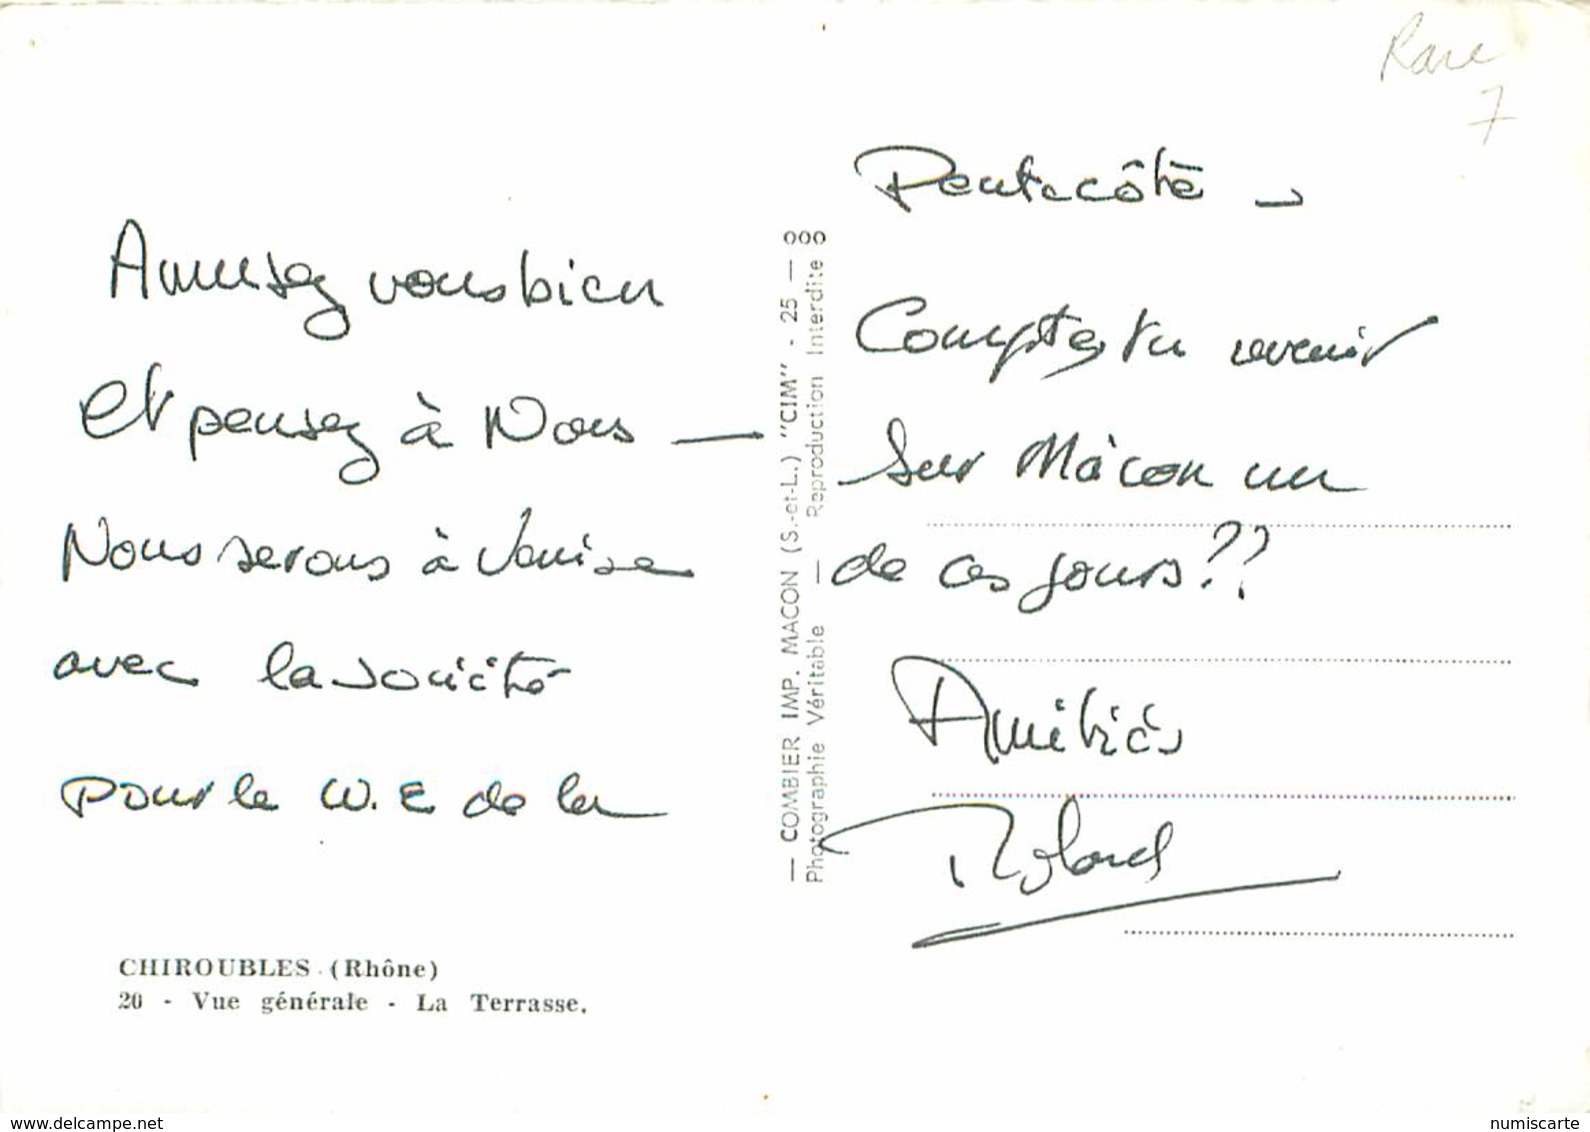 Amusez vous bien
et pensez à Nous —
Nous serons à Venise
avec la société
pour le W.E de la
CHIROUBLES (Rhône)
20 - Vue générale - La Terrasse.
— COMBIER IMP. MACON (S.-et-L.) "CIM" - 25 —
Photographie Véritable — Reproduction Interdite
Rare
7
Pentecôte —
Comptes tu venir
sur Mâcon un
de ces jours ??
Amitiés
Roland
www.delcampe.net
numiscarte